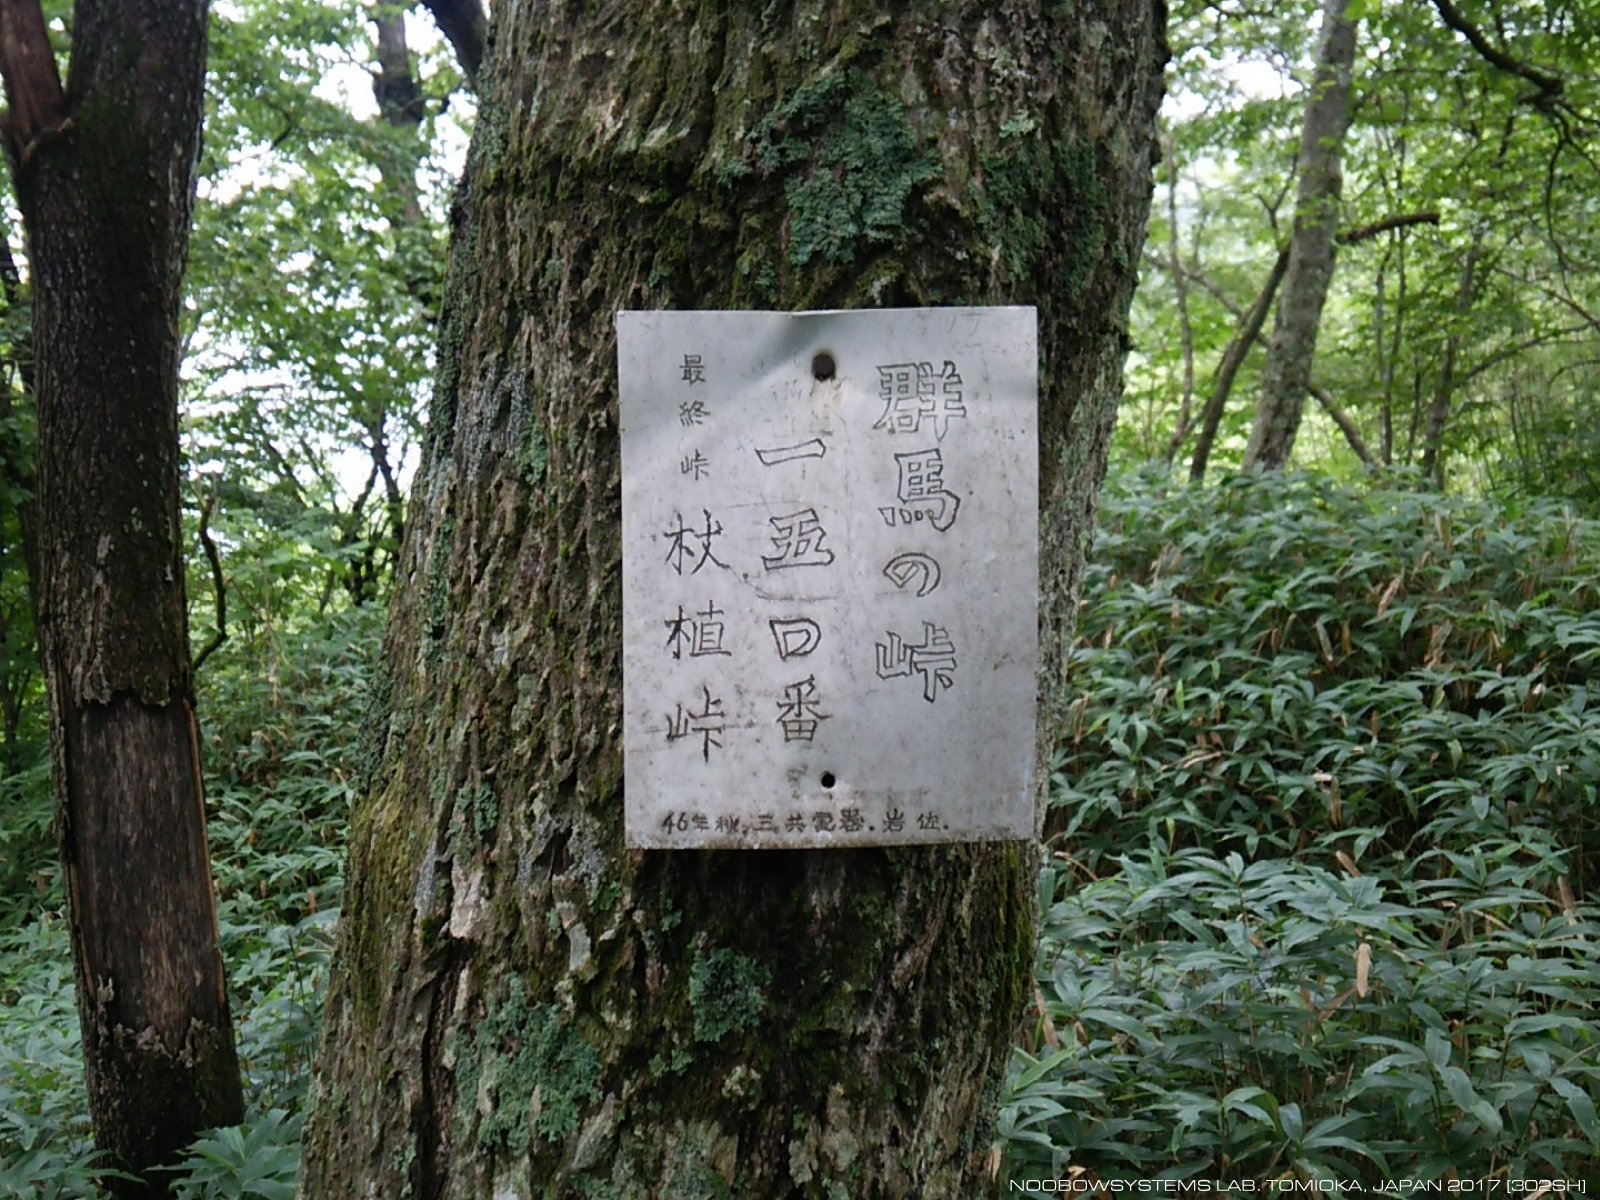 群馬の峠
一五〇番
最終峠 杖植峠
46年秋.三共電器.岩佐.
NOOBOWSYSTEMS LAB. TOMIOKA, JAPAN 2017 [302SH]